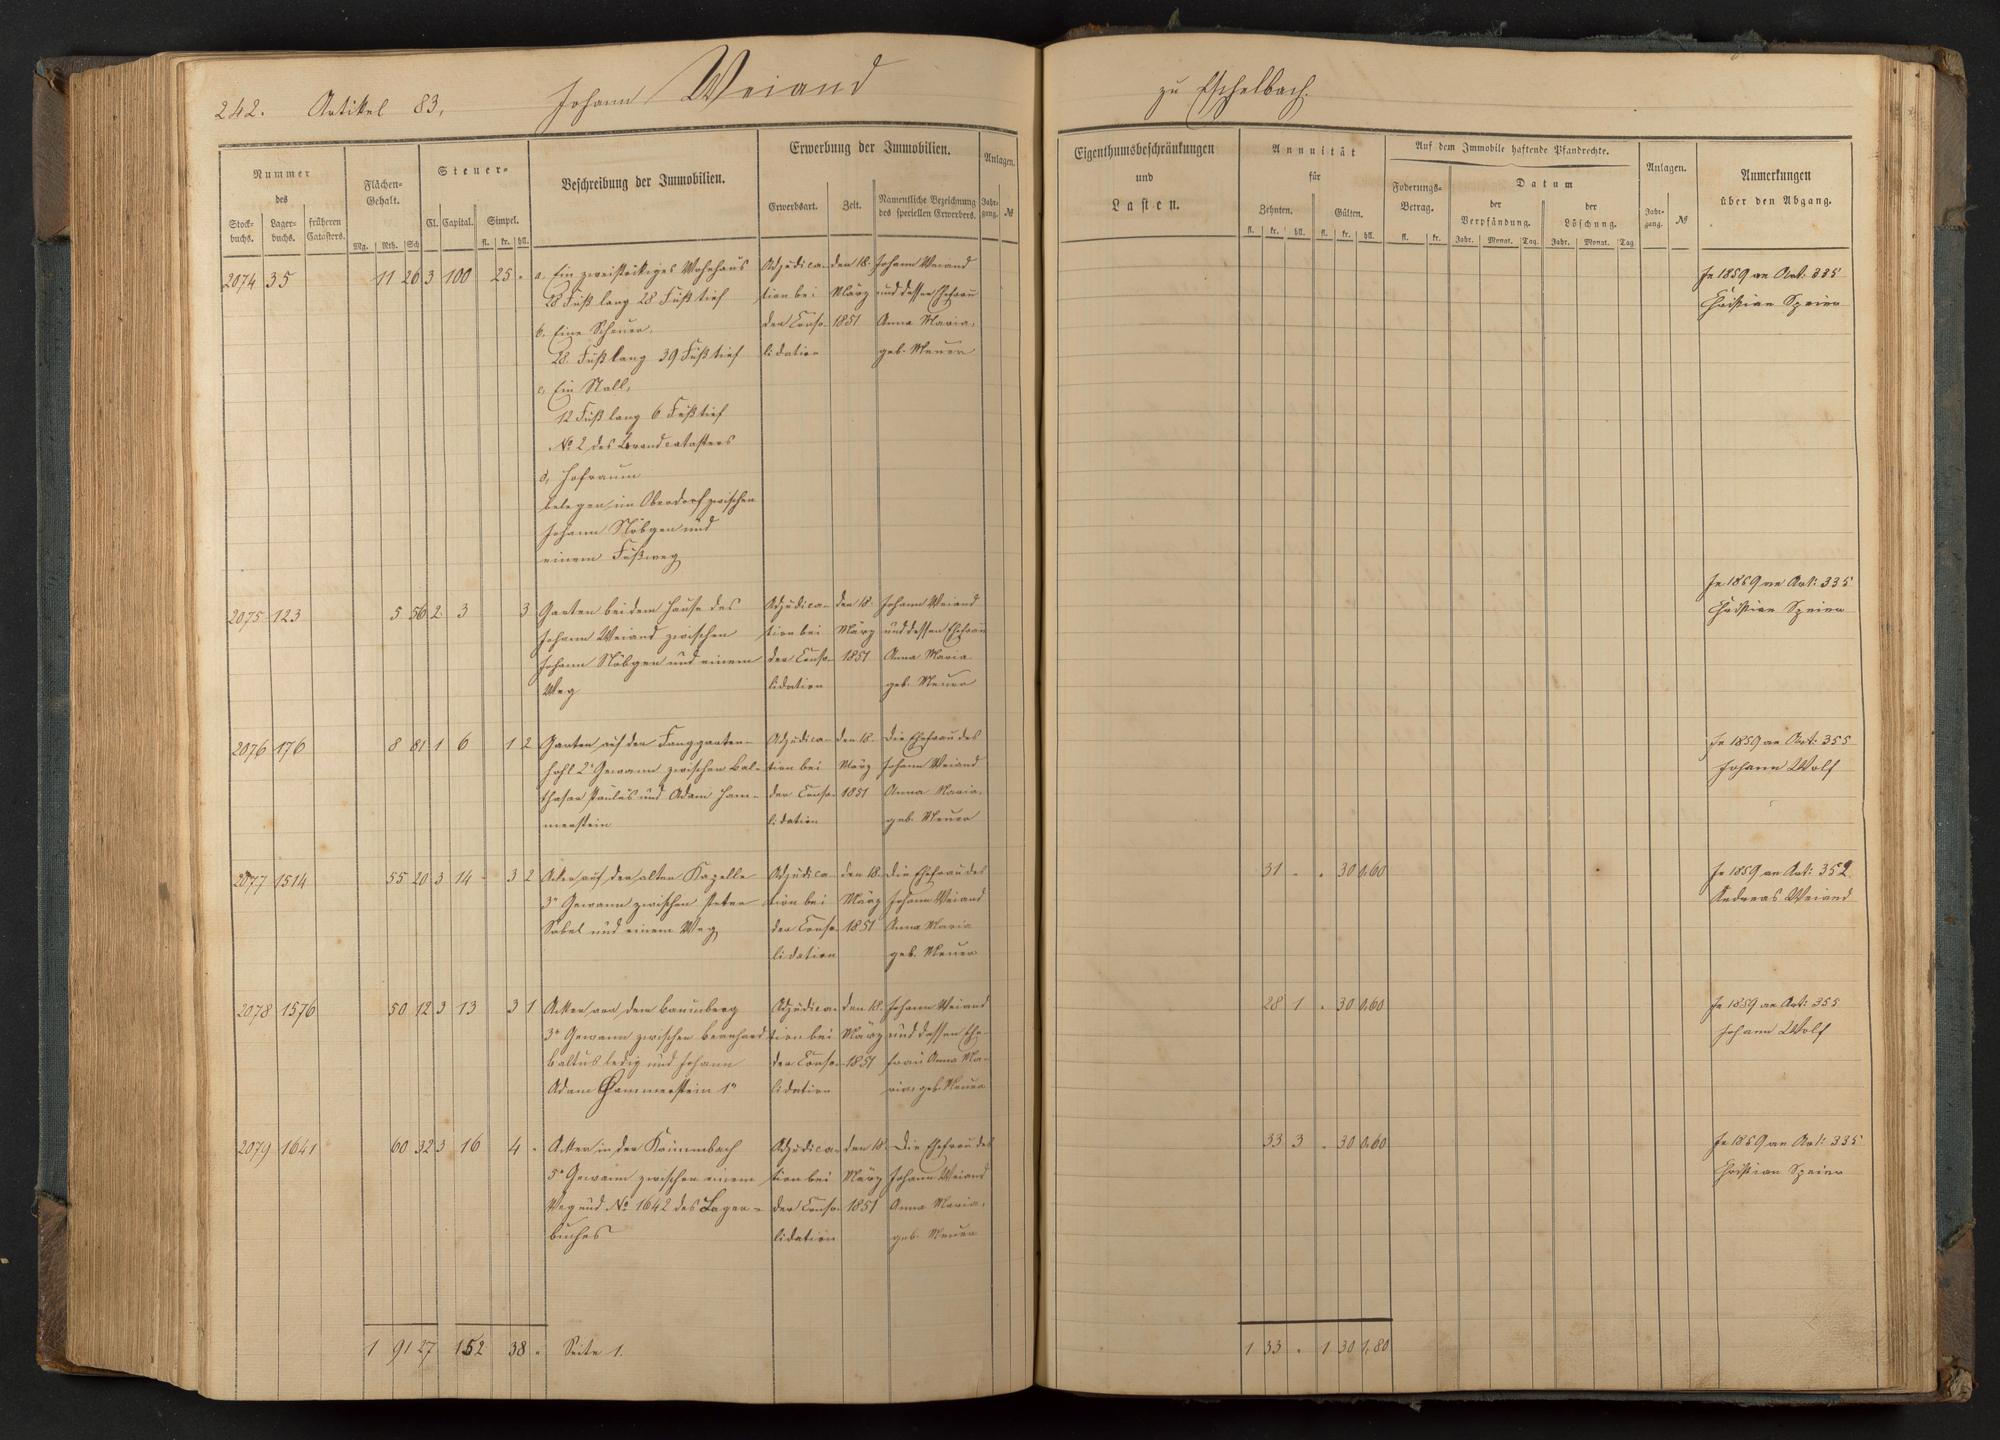 242. Artikel 83, Johann Weiand zu Eschelbach.
Nummer
des
Stock-
buchs.
Lager-
buchs.
früheren
Catasters.
Flächen-
Gehalt.
Mg. Rth. Sch
Steuer-
Cl. Capital. Simpel.
fl. kr. hll.
Beschreibung der Immobilien.
Erwerbung der Immobilien.
Erwerbsart. Zeit.
Namentliche Bezeichnung
des speciellen Erwerbers.
Anlagen.
Jahr-
gang. №
Eigenthumsbeschränkungen
und
Lasten.
Annuität
für
Zehnten. Gülten.
fl. kr. hll. fl. kr. hll.
Auf dem Immobile haftende Pfandrechte.
Foderungs-
Betrag.
fl. kr.
Datum
der
Verpfändung.
der
Löschung.
Jahr. Monat. Tag. Jahr. Monat. Tag
Anlagen.
Jahr-
gang. №
Anmerkungen
über den Abgang.
2074 35 11 26 3 100 25 -
a. Ein zweistöckiges Wohnhaus
28 Fuß lang 28 Fuß tief
b. Eine Scheuer,
28 Fuß lang 39 Fuß tief
c. Ein Stall,
12 Fuß lang 6 Fuß tief
№ 2 des Brandcatasters
d, Hofraum
belegen im Oberdorf zwischen
Johann Nöbgen und
einem Fußweg
Adjudica-
tion bei
der Conso-
lidation
den 18.
März
1851
Johann Weiand
und dessen Ehefrau
Anna Maria,
geb. Meuer
In 1859 an Art: 335
Christian Speier
2075 123 5 56 2 3 3
Garten bei dem Hause des
Johann Weiand zwischen
Johann Nöbgen und einem
Weg
Adjudica-
tion bei
der Conso-
lidation
den 18.
März
1851
Johann Weiand
und dessen Ehefrau
Anna Maria
geb. Meuer
In 1859 an Art: 335
Christian Speier
2076 176 8 81 1 6 1 2
Garten auf der Langgarten-
hohl 2r Gewann zwischen Bal-
thasar Paulus und Adam Ham-
merstein
Adjudica-
tion bei
der Conso-
lidation
den 18.
März
1851
Die Ehefrau des
Johann Weiand
Anna Maria,
geb. Meuer
In 1859 an Art: 355
Johann Wolf
2077 1514 55 20 3 14 3 2
Acker auf der alten Kapelle
3r Gewann zwischen Peter
Sabel und einem Weg
Adjudica-
tion bei
der Conso-
lidation
den 18.
März
1851
Die Ehefrau des
Johann Weiand
Anna Maria
geb. Meuer
31 - - 30 0,60
In 1859 an Art: 352
Andreas Weiand
2078 1576 50 12 3 13 3 1
Acker vor dem Baumberg
3r Gewann zwischen Bernhard
Baltus ledig und Johann
Adam Hammerstein 1r
Adjudica-
tion bei
der Conso-
lidation
den 18.
März
1851
Johann Weiand
und dessen Ehe-
frau Anna Ma-
ria, geb. Meuer
28 1 - 30 0,60
In 1859 an Art: 355
Johann Wolf
2079 1641 60 32 3 16 4 -
Acker in der Krummbach
5r Gewann zwischen einem
Weg und № 1642 des Lager-
buches
Adjudica-
tion bei
der Conso-
lidation
den 18.
März
1851
Die Ehefrau des
Johann Weiand
Anna Maria,
geb. Meuer
33 3 - 30 0,60
In 1859 an Art: 335
Christian Speier
1 91 27 152 38 - Seite 1.
1 33 - 1 30 1,80